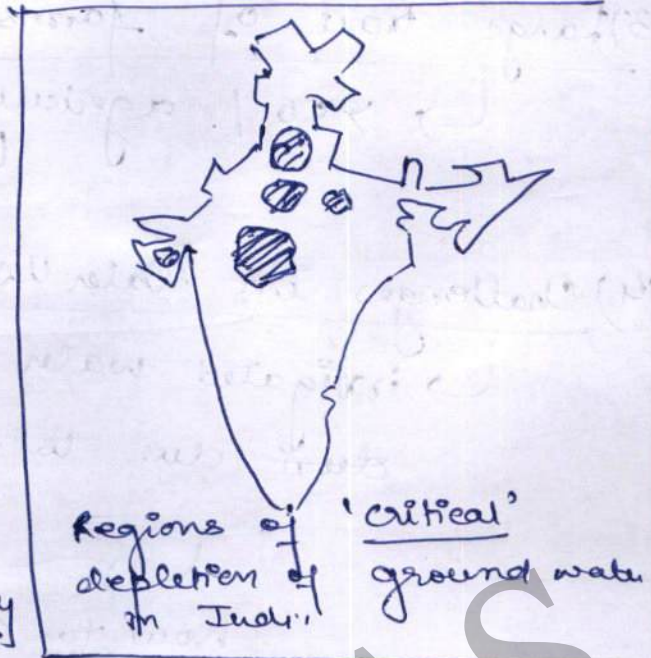 Regions of 'critical'
depletion of ground water
in India
y